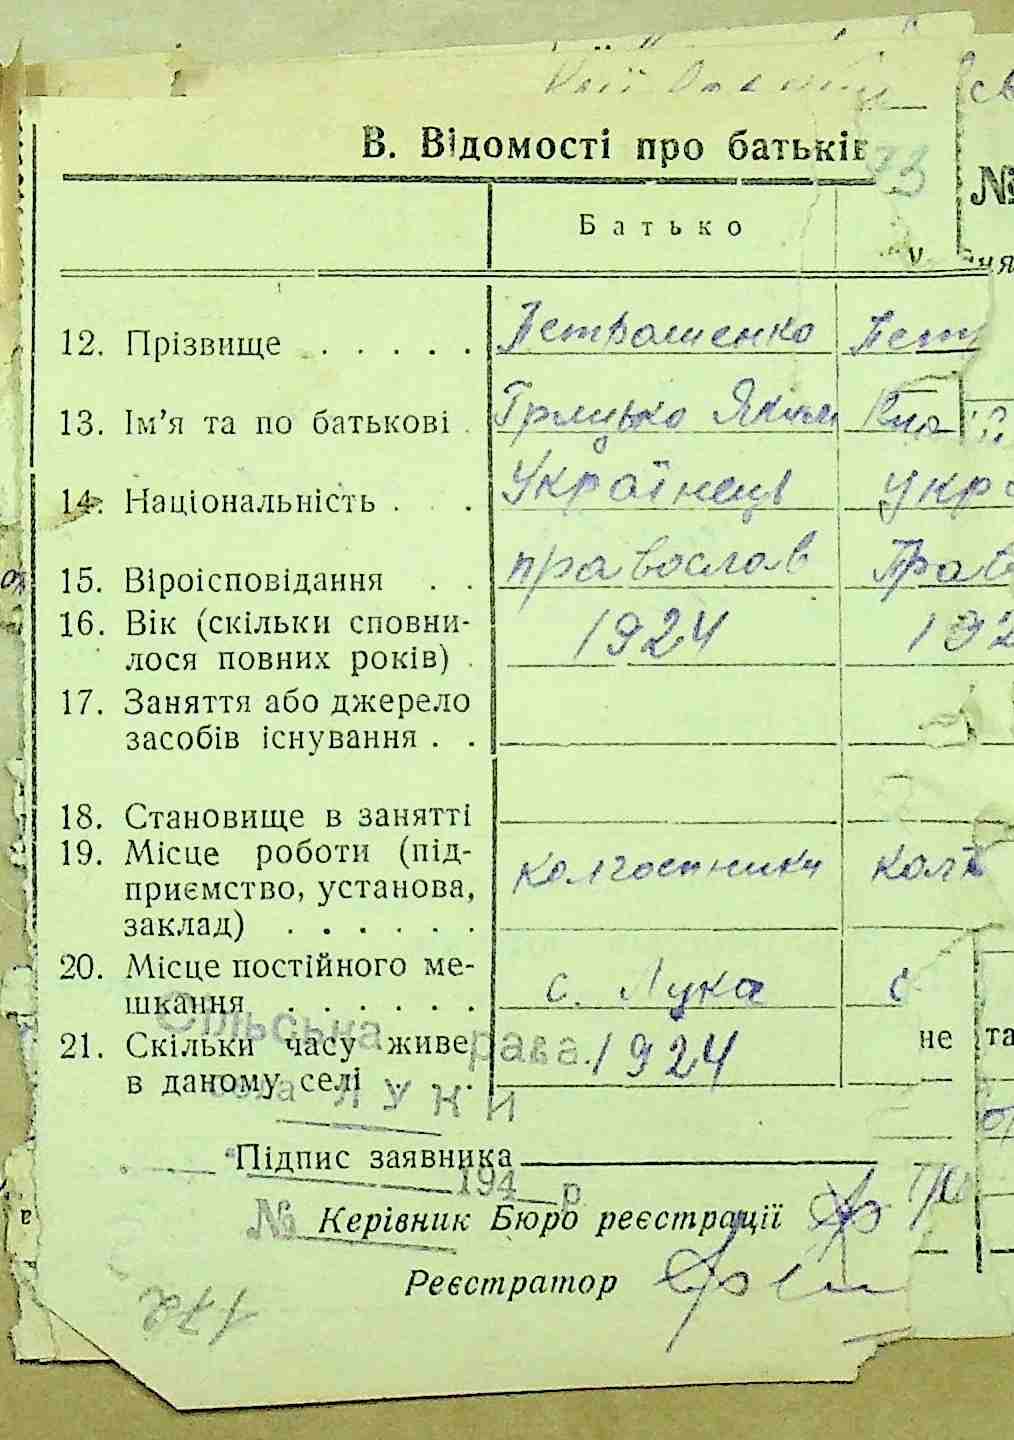 В. Відомості про батьків
93
№
Батько
12. Прізвище . . . . . Петрашенко Пет
13. Ім'я та по батькові . Грицько Яким
14. Національність . . . Українець укр
15. Віроісповідання . . православ Прав
16. Вік (скільки сповни-
лося повних років) . 1924 192
17. Заняття або джерело
засобів існування . .
18. Становище в занятті
19. Місце роботи (під-
приємство, установа, колгоспники кол
заклад) . . . . . .
20. Місце постійного ме-
шкання . . . . . . с. Лука с
Сільська рава
21. Скільки часу живе 1924
не та
в даному селі . . .
села ЛУКИ
Підпис заявника
194 р
№ Керівник Бюро реєстрації
Реєстратор
172